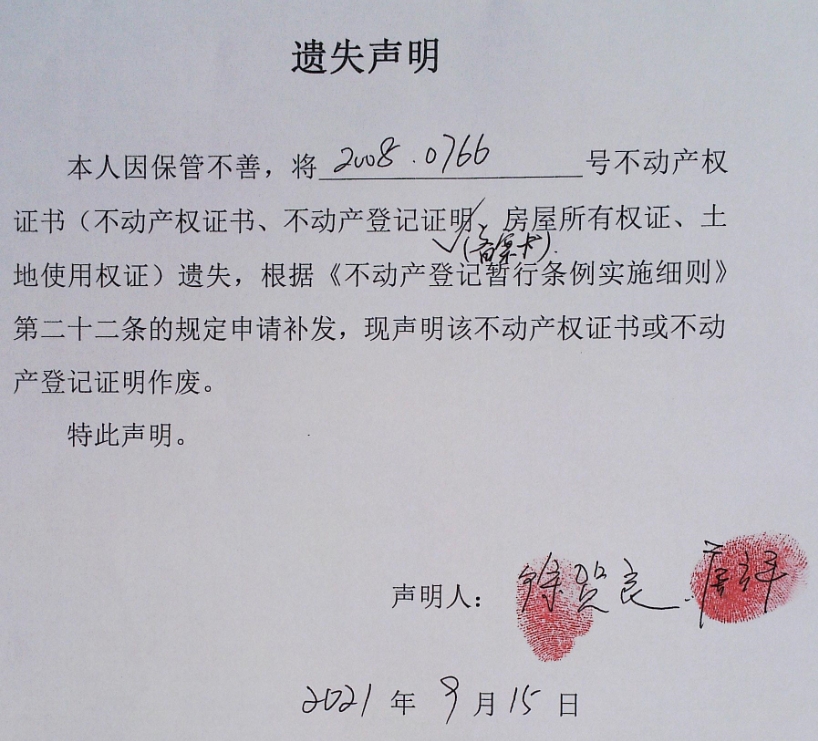 遗失声明
本人因保管不善，将 2008.0766 号不动产权
证书（不动产权证书、不动产登记证明、房屋所有权证、土
✓(备案卡).
地使用权证）遗失，根据《不动产登记暂行条例实施细则》
第二十二条的规定申请补发，现声明该不动产权证书或不动
产登记证明作废。
特此声明。
声明人：徐贺良.
2021 年 9 月 15 日